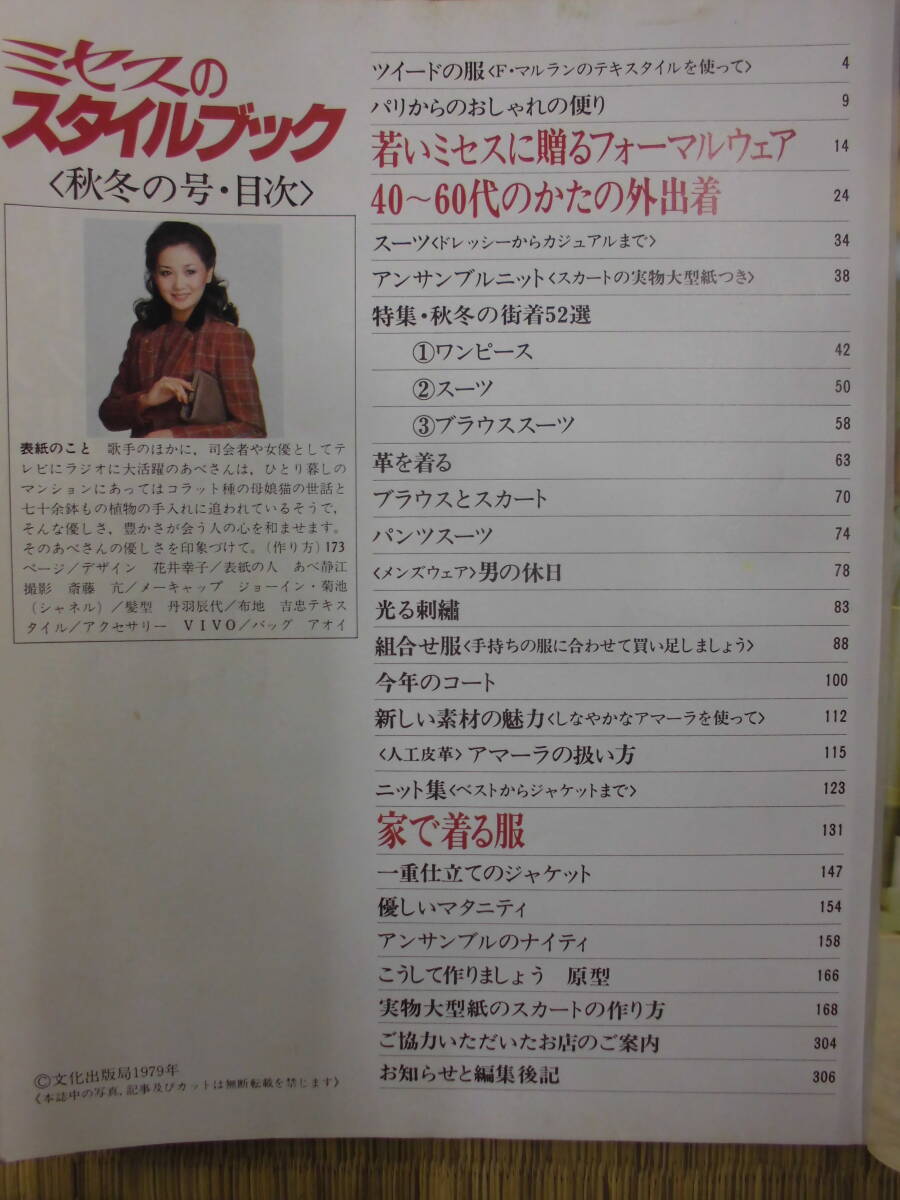 ミセスの
スタイルブック
〈秋冬の号・目次〉
表紙のこと　歌手のほかに，司会者や女優としてテ
レビにラジオに大活躍のあべさんは，ひとり暮しの
マンションにあってはコラット種の母娘猫の世話と
七十余鉢もの植物の手入れに追われているそうで，
そんな優しさ，豊かさが会う人の心を和ませます。
そのあべさんの優しさを印象づけて。（作り方）173
ページ／デザイン　花井幸子／表紙の人　あべ静江
撮影　斎藤　亢／メーキャップ　ジョーイン・菊池
（シャネル）／髪型　丹羽辰代／布地　吉忠テキス
タイル／アクセサリー　VIVO／バッグ　アオイ
©文化出版局1979年
〈本誌中の写真，記事及びカットは無断転載を禁じます〉
ツイードの服〈F・マルランのテキスタイルを使って〉 4
パリからのおしゃれの便り 9
若いミセスに贈るフォーマルウェア 14
40～60代のかたの外出着 24
スーツ〈ドレッシーからカジュアルまで〉 34
アンサンブルニット〈スカートの実物大型紙つき〉 38
特集・秋冬の街着52選
①ワンピース 42
②スーツ 50
③ブラウススーツ 58
革を着る 63
ブラウスとスカート 70
パンツスーツ 74
〈メンズウェア〉男の休日 78
光る刺繡 83
組合せ服〈手持ちの服に合わせて買い足しましょう〉 88
今年のコート 100
新しい素材の魅力〈しなやかなアマーラを使って〉 112
〈人工皮革〉アマーラの扱い方 115
ニット集〈ベストからジャケットまで〉 123
家で着る服 131
一重仕立てのジャケット 147
優しいマタニティ 154
アンサンブルのナイティ 158
こうして作りましょう　原型 166
実物大型紙のスカートの作り方 168
ご協力いただいたお店のご案内 304
お知らせと編集後記 306